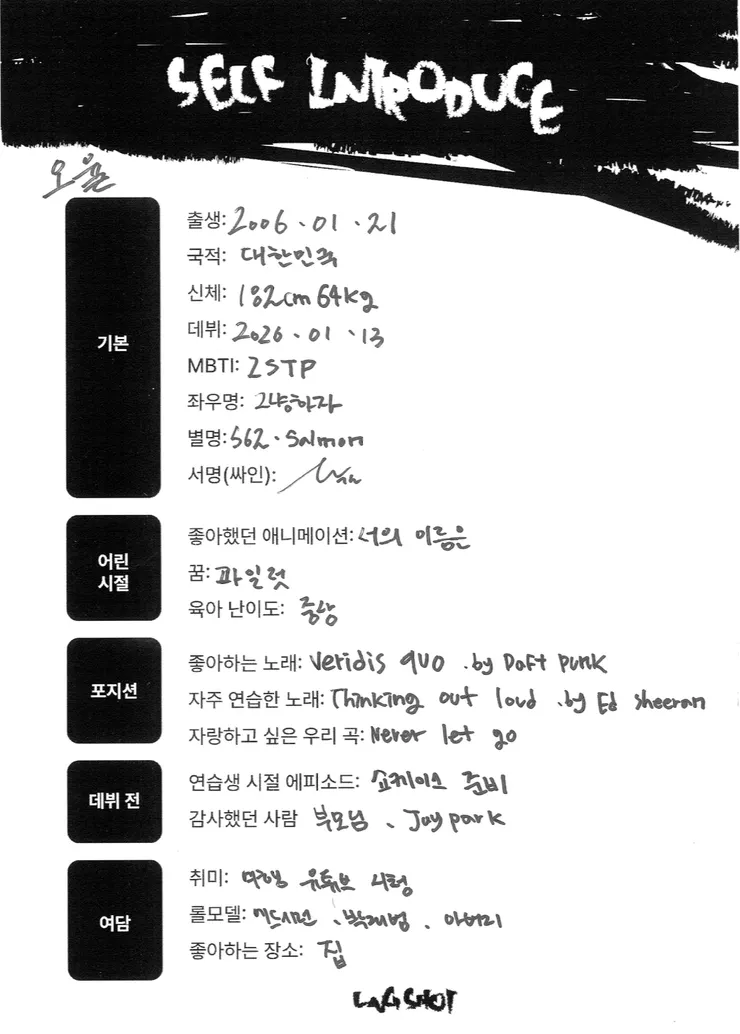 SELF INTRODUCE
오율
기본
출생: 2006.01.21
국적: 대한민국
신체: 182cm 64kg
데뷔: 2026.01.13
MBTI: ISTP
좌우명: 그냥하자
별명: 562. Salmon
서명(싸인):
어린 시절
좋아했던 애니메이션: 너의 이름은
꿈: 파일럿
육아 난이도: 중상
포지션
좋아하는 노래: Veridis quo .by Daft punk
자주 연습한 노래: Thinking out loud .by Ed sheeran
자랑하고 싶은 우리 곡: Never let go
데뷔 전
연습생 시절 에피소드: 쇼케이스 준비
감사했던 사람 부모님、Jay park
여담
취미: 여행 유튜브 시청
롤모델: 에드시런、박재범、아버지
좋아하는 장소: 집
LNGSHOT